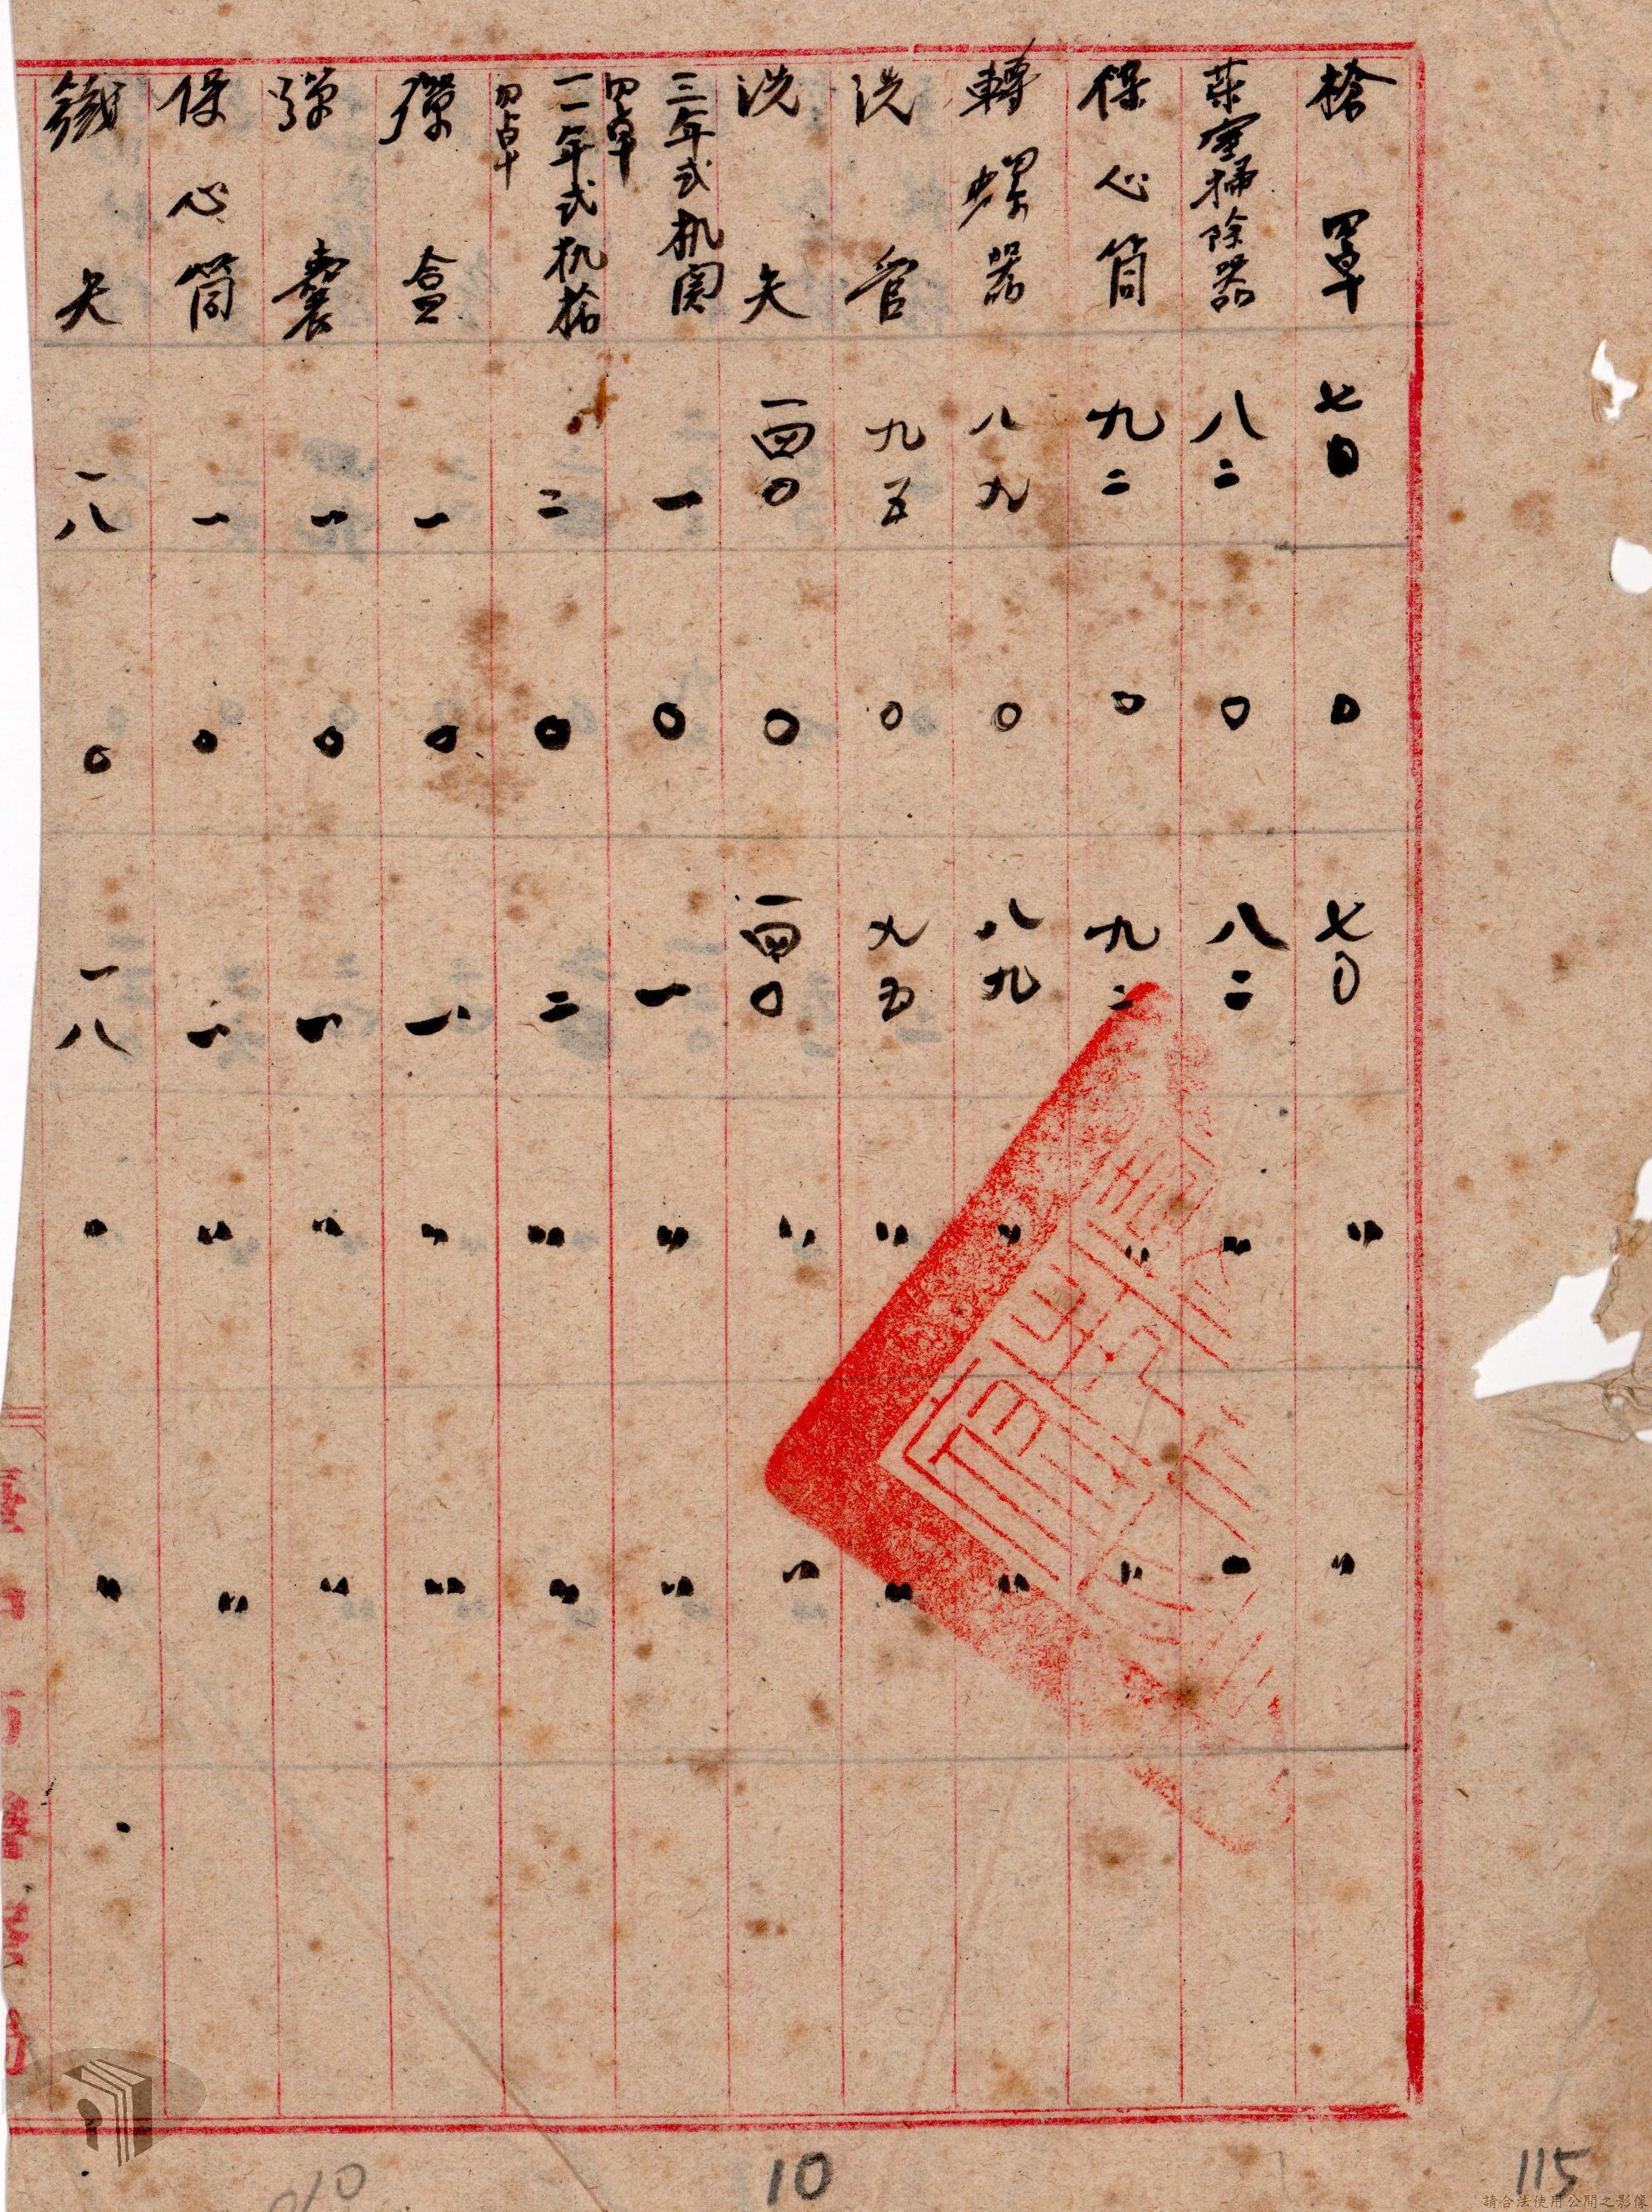 槍罩 七〇 〇 七〇 〃 〃
薬室掃除器 八二 〇 八二 〃 〃
保心筒 九二 〇 九二 〃 〃
轉螺器 八九 〇 八九 〃 〃
洗管 九五 〇 九五 〃 〃
洗矢 一四〇 〇 一四〇 〃 〃
三年式机関
一 〇 一 〃 〃
一一年式机槍
二 〇 二 〃 〃
弾盒 一 〇 一 〃 〃
弾囊 一 〇 一 〃 〃
保心筒 一 〇 一 〃 〃
鐵矢 一八 〇 一八 〃 〃
10
115
請合法使用公開之影像